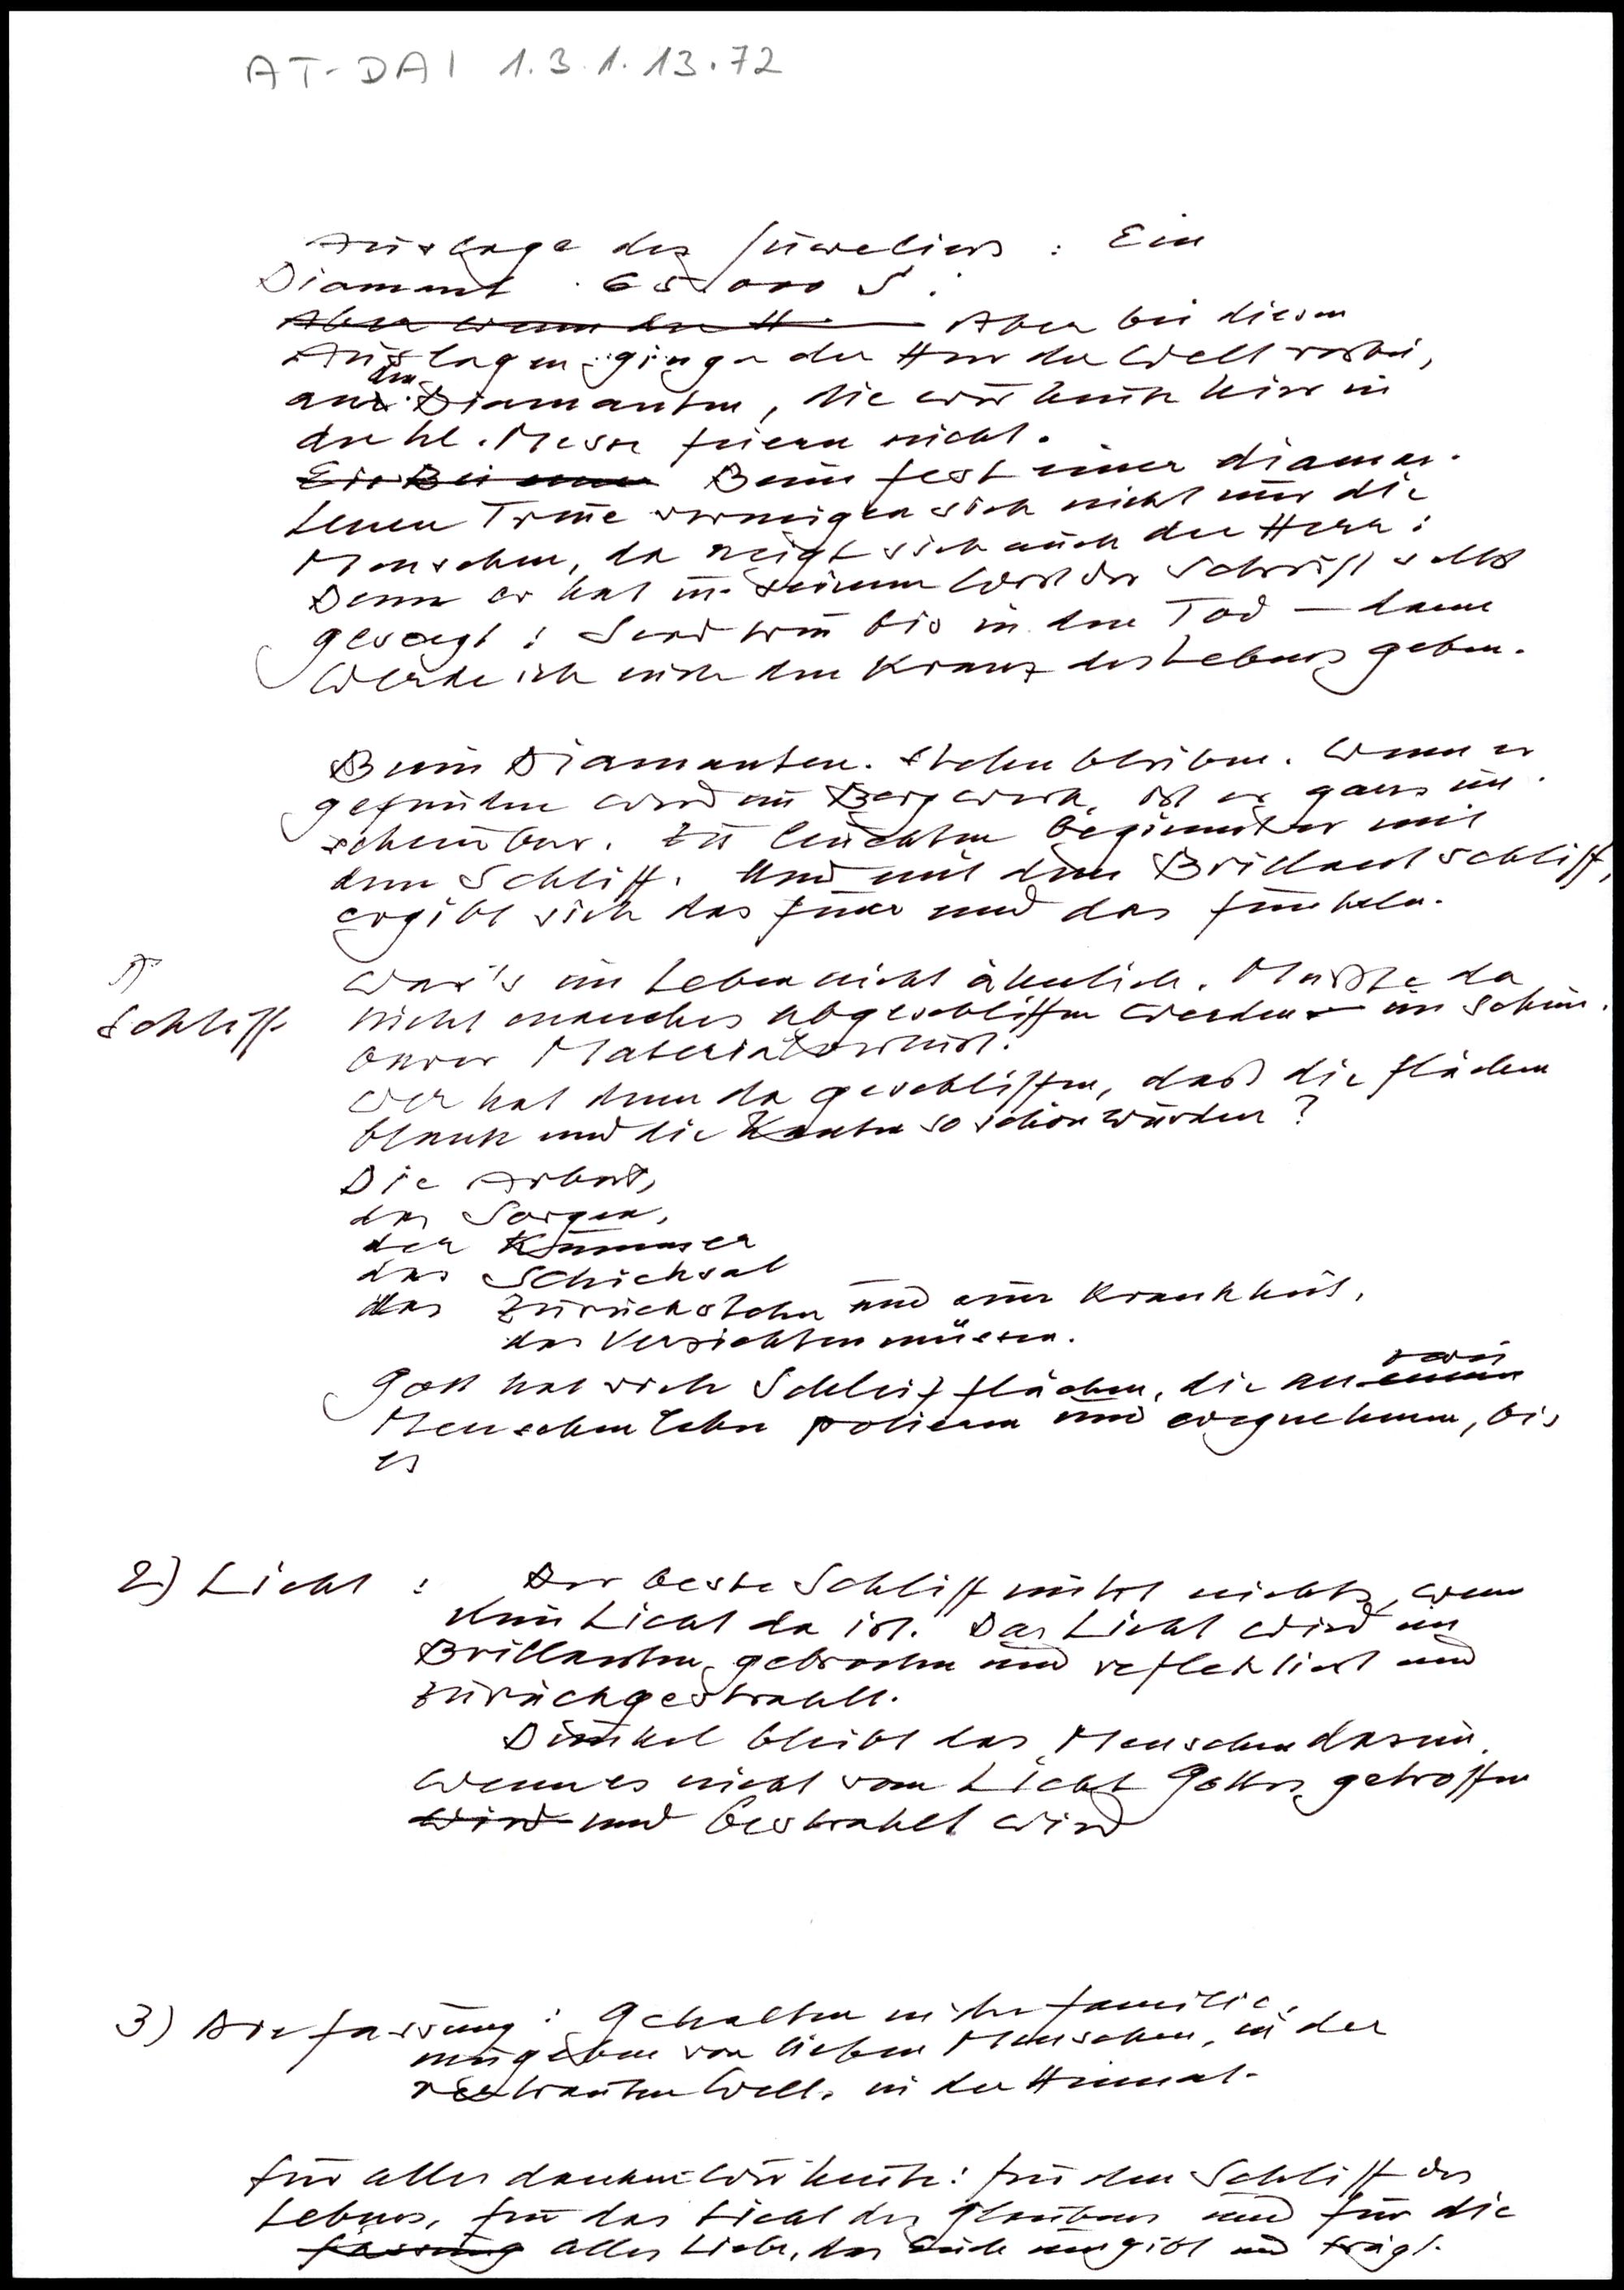 AT-DAI 1.3.1.13.72
Auslage des Juweliers : Ein
Diamant . 65.000 S.
Aber wenn der H Aber bei diesen
Auslagen ginge der Herr der Welt vorbei,
an den Diamanten, die wir heute hier in
der hl. Messe feiern nicht.
Beim Fest einer diaman-
tenen Treue verneigen sich nicht nur die
Menschen, da neigt sich auch der Herr:
Denn er hat in seinem Wort der Schrift selbst
gesagt: Seid treu bis in den Tod — dann
werde ich euch den Kranz des Lebens geben.
Beim Diamanten. stehen bleiben. Wenn er
gefunden wird im Bergwerk, ist er ganz un-
scheinbar. Zu leuchten beginnt er mit
dem Schliff. Und mit dem Brillantschliff,
ergibt sich das Feuer und das Funkeln.
War's im Leben nicht ähnlich. Mußte da
Schliff nicht manches abgeschliffen werden — ein schein-
barer Materialverlust.
Wer hat denn da geschliffen, daß die Flächen
blank und die Kanten so schön wurden?
Die Arbeit,
das Sorgen,
der Kummer
das Schicksal
das Zurückstehen und eine Krankheit,
das Verzichten müssen.
Gott hat viele Schleifflächen, die an einem
Menschenleben polieren und wegnehmen, bis
es
2) Licht : Der beste Schliff nützt nichts, wenn
kein Licht da ist. Das Licht wird im
Brillanten gebrochen und reflektiert und
zurückgestrahlt.
Dunkel bleibt das Menschendasein,
wenn es nicht vom Licht Gottes getroffen
wird und bestrahlt wird
3) Die Fassung : Gehalten in der Familie,
umgeben von lieben Menschen, in der
vertrauten Welt, in der Heimat.
Für alles danken wir heute: für den Schliff des
Lebens, für das Licht des Glaubens und für die
Fassung aller Liebe, das Euch umgibt und trägt.